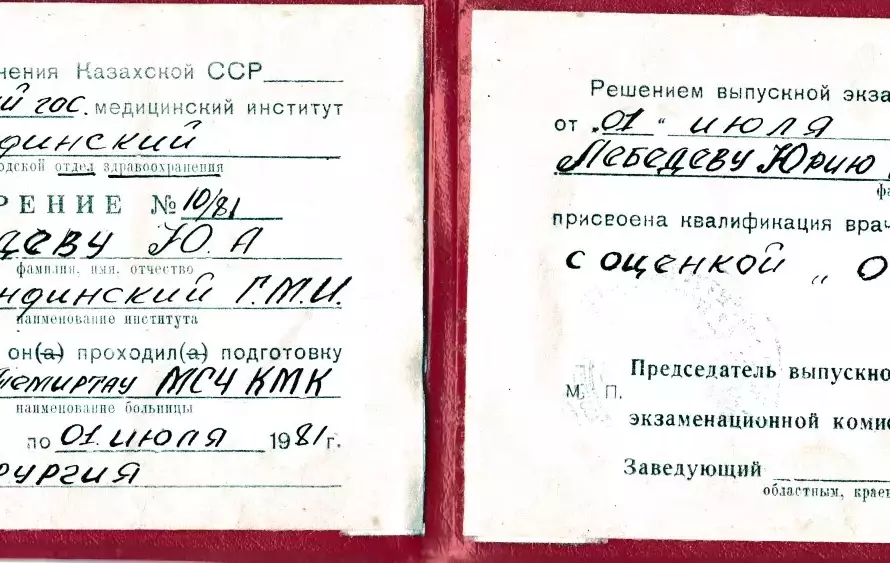 нения Казахской ССР
й гос. медицинский институт
динский
одской отдел здравоохранения
РЕНИЕ № 10/81
деву Ю. А
фамилия, имя, отчество
ндинский Г.М.И.
наименование института
он(а) проходил(а) подготовку
Темиртау МСЧ КМК
наименование больницы
по 01. июля 1981 г.
рургия
Решением выпускной экза
от „01“ июля
Лебедеву Юрию
фа
присвоена квалификация врач
с оценкой „ О
Председатель выпускно
М. П.
экзаменационной комис
Заведующий
областным, крае